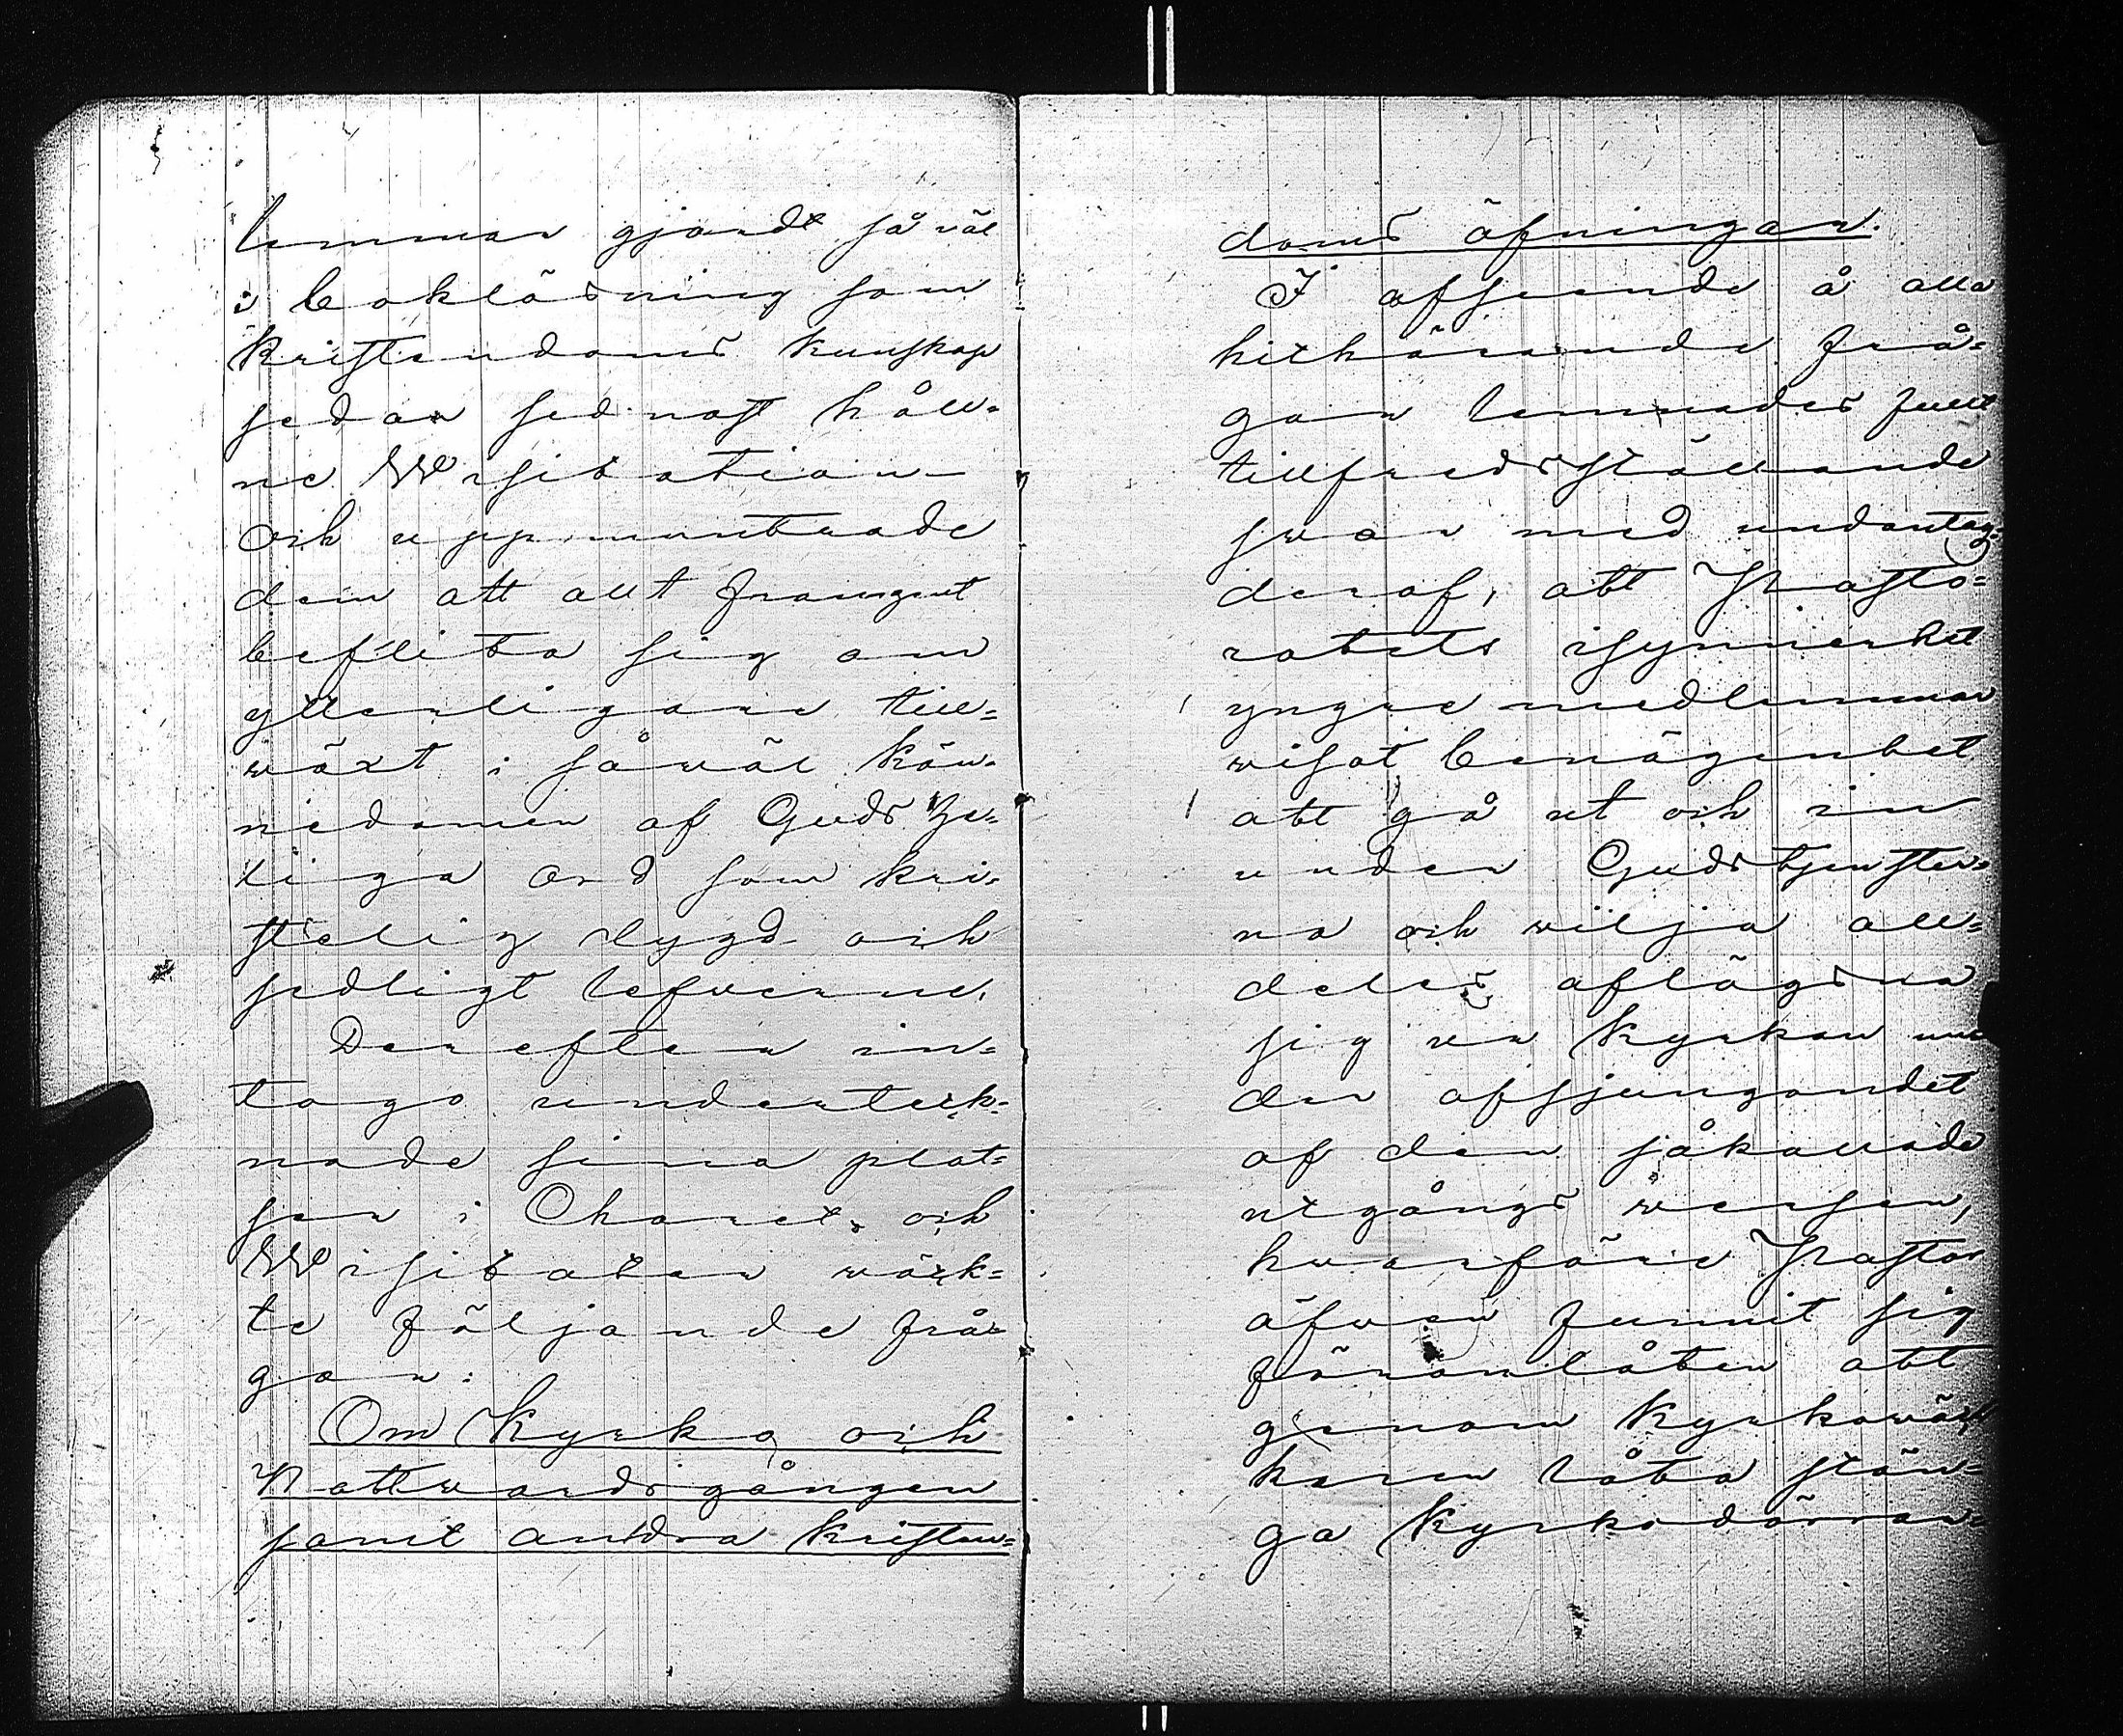 lemmar gjordt så väl
i bokläsning som
kristendoms kunskap
sedan sednast håll-
ne Wisitation
och uppmuntrade
dem att allt framgent
beflita sig om
ytterligare till-
wäxt i såwäl kän-
nedomen af Guds he-
liga ord som kri-
stelig dygd och
sedligt lefwerne.
Derefter in-
togo underteck-
nade sina plat-
ser i Choret och
Wisitator wäck-
te följande frå-
gor:
Om Kyrko och
Nattwardsgången
samt andra kristen-
doms öfningar.
I afseende å alla
hithörande frå-
gor lemnades fullt
tillfredsställande
swar med undantag
deraf, att Pasto-
ratets isynnerhet
yngre medlemmar
wisat benägenhet
att gå ut och in
under Gudstjenster-
na och wilja all-
deles aflägsna
sig ur Kyrkan un-
der afsjungandet
af den såkallade
utgångs wersen,
hwarföre Pastor
äfwen funnit sig
föranlåten att
genom Kyrkowäk-
taren låta stän-
ga Kyrkodörrar-